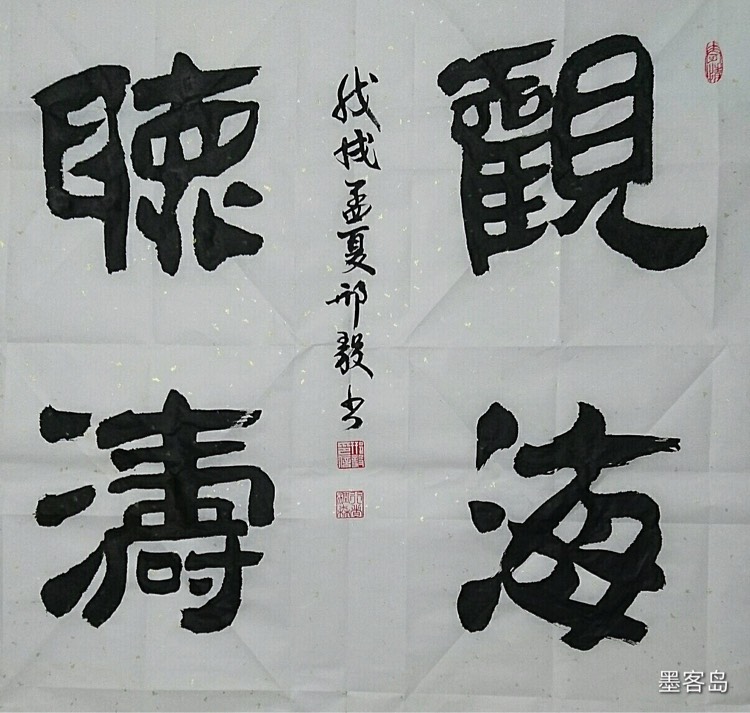 觀海
聽濤
戊戌孟夏邢毅书
墨客岛